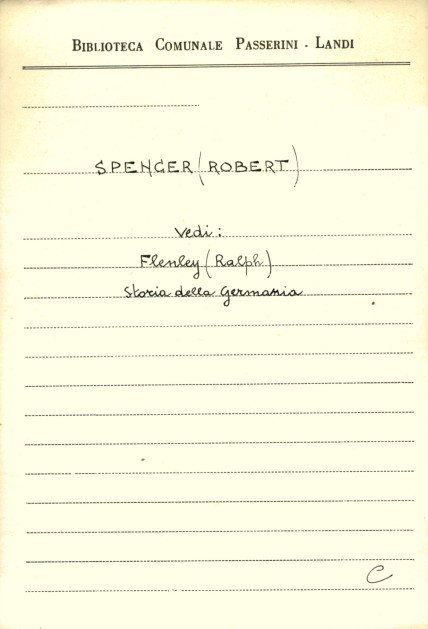 BIBLIOTECA COMUNALE PASSERINI - LANDI
SPENCER (ROBERT)
Vedi:
Flenley (Ralph)
Storia della Germania
C